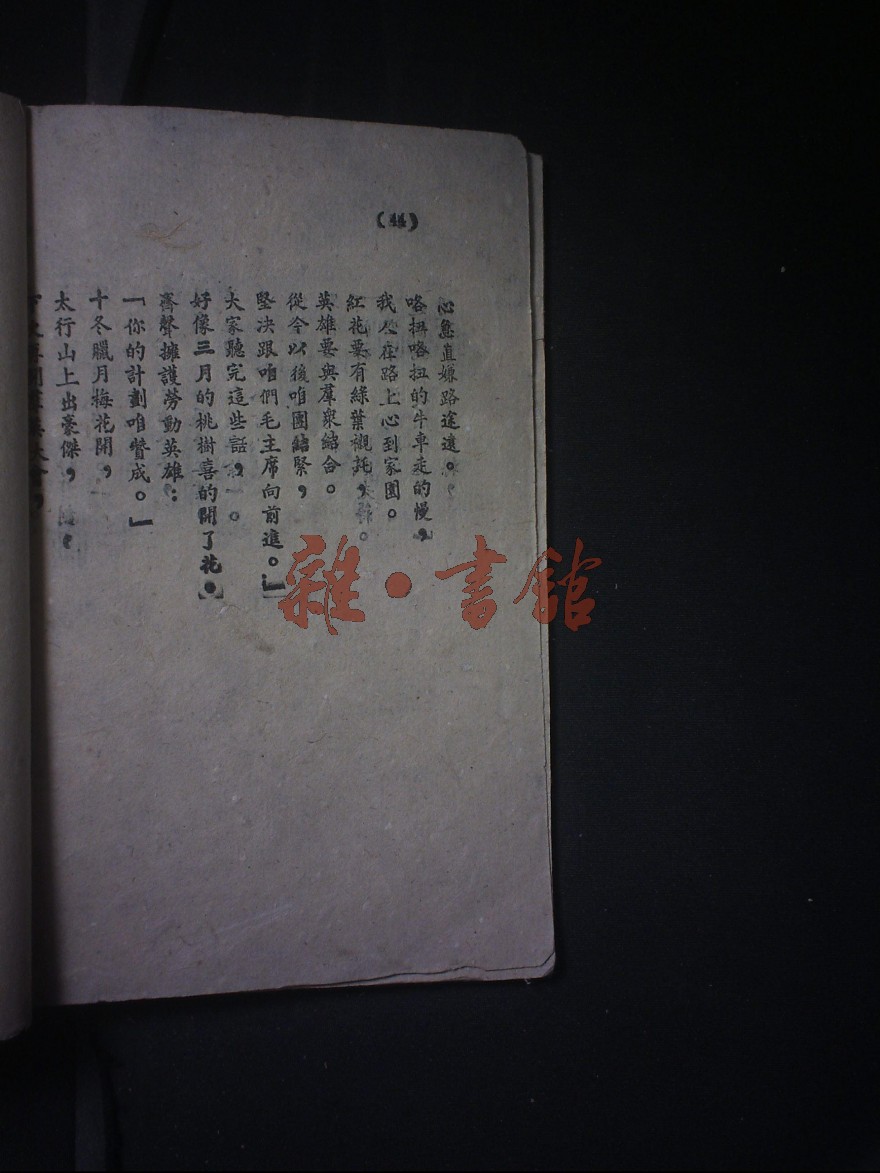 (44)
心急直嫌路途遠。
咯扭咯扭的牛車走的慢，
我人在路上心到家園。
紅花要有綠葉襯託，
英雄要與羣衆結合。
從今以後咱團結緊，
堅决跟咱們毛主席向前進。」
大家聽完這些話，
好像三月的桃樹喜的開了花。
齊聲擁護勞動英雄：
「你的計劃咱贊成。」
十冬臘月梅花開，
太行山上出豪傑，
雜·書館